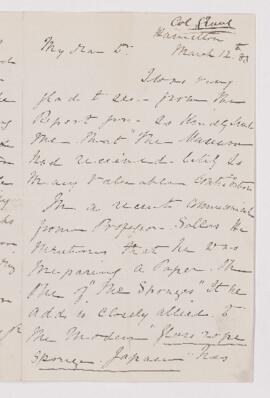 Col Grant
Hamilton
March 12th 83
My dear Sir
I was very
glad to see from the
Report you so kindly sent
me that "The Museum
had received lately so
many valuable Contributions
In a recent communication
from Professor Sollas he
mentions that he was
preparing a Paper. On
One of "The Sponges" It he
adds is closely allied to
the Modern "glass rope
sponge. Japan" has